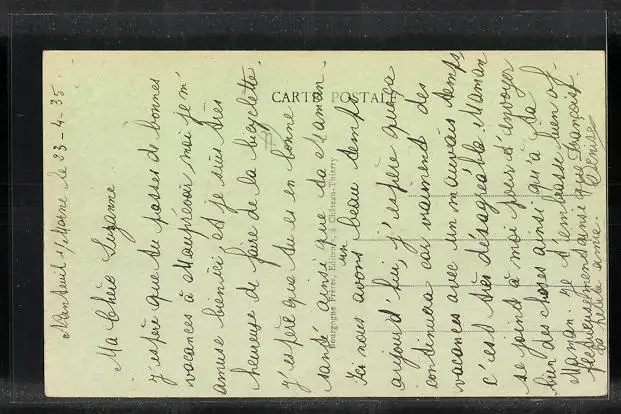 Nanteuil s/Marne le 23-4-35.
Ma Chère Suzanne
J'espère que tu passes de bonnes
vacances à Mauprévoir, moi je m'
amuse bien ici et je suis très
heureuse de faire de la bicyclette.
J'espère que tu es en bonne
santé ainsi que ta Maman.
Ici nous avons un beau temps
aujourd'hui, j'espère que ça
continuera car vraiment des
vacances avec un mauvais temps
c'est très désagréable. Maman
se joint à moi pour t'envoyer
bien des choses ainsi qu'à ta
Maman. Je t'embrasse bien af-
fectueusement ainsi que Françoise.
Ta petite amie.
Denise
CARTE POSTALE
Bourgogne Frères, Editeurs, à Château-Thierry